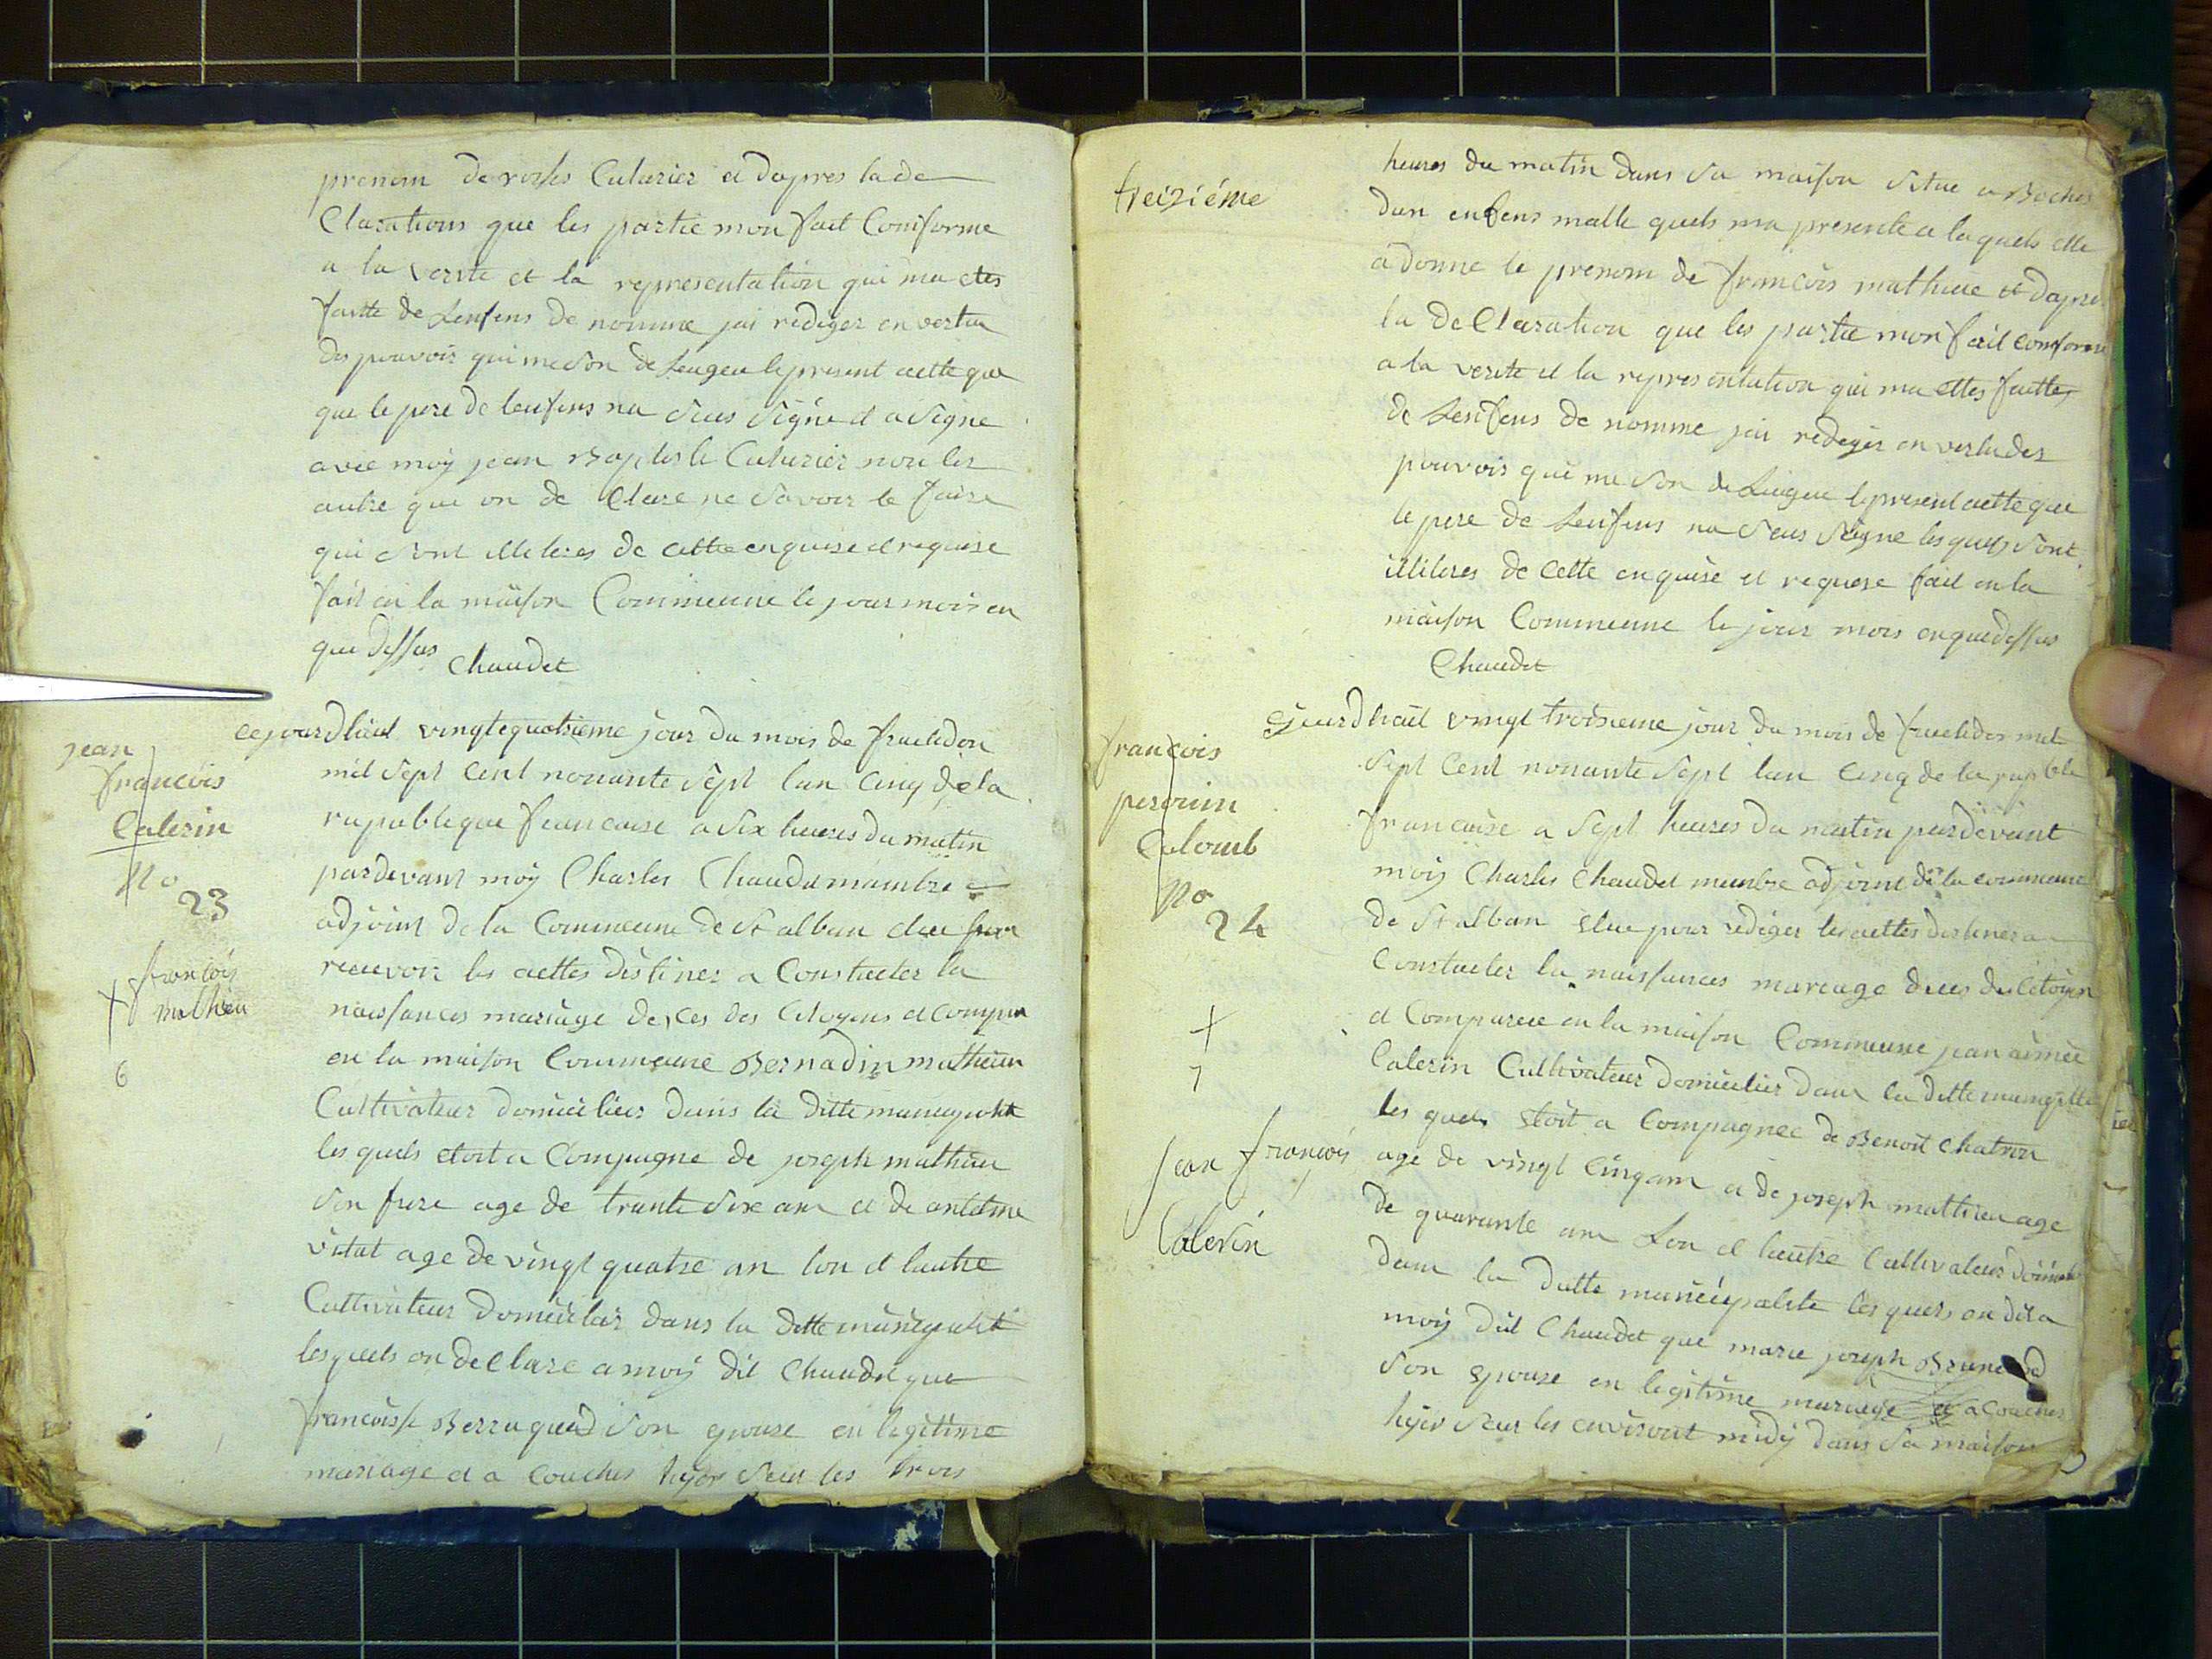 prenom de roses Caterier et dapres la de
Clarations que les partie mon fait Conforme
a la verite et la representation qui ma etes
faitte de Lenfens de nomme jai rediger en vertu
des pouvoir qui me son deleugeu le present actte que
que le pere de lenfens na seus signe et a signe
avec moy jean Baptiste Caterier non les
autre que on de Clare ne savoir le faire
qui sont illiteres de cette enquise et requise
fait en la maison Commeune le jour mois en
que dessus
Chaudet
jean
francois
Caterin
No
23
francois
mathieu
6
cejourdhuit vingtequatrieme jour du mois de fruictidon
mil sept cent nonante sept lan cinq de la
rupublique francaise a six heures du matin
pardevant moy Charles Chaudet mambre
adjoint de la Commeune de St alban elue pour
recevoir les acttes destines a Constacter la
naissances mariage deces des Citoyens et Compru
en la maison Commeune Bernadin mathieu
Cultivateur domicilier dans la ditte municypalite
les quels etoit a Compagne de joseph mathieu
son frere age de trante six ans et de antoine
vitat age de vingt quatre an lun et lautre
Cultivateur domicilier dans la ditte municypalite
lesquels on declare a moy dit Chaudet que
francoisse Berruquad son epouse en legitime
mariage et a Couches hyer seur les trois
treiziéme
heures du matin dans sa maison situe a Boches
dun enfens malle quels ma presente a la quels elle
a donne le prenom de francois mathieue et dapres
la deClaration que les partie mon fait conforme
a la verite et la representation qui ma ettes faitte
de Lenfens de nomme jai rediger en vertu des
pouvoir qui me son deLeugeu le present actte que
le pere de Lenfens na seus signe les quels sont
illiteres de cette enquise et requese fait en la
maison Commeune le jour mois en que dessus
Chaudet
francois
Colomb
No
24
7
jean francois
Caterin
cejourdhuit vingt troisieme jour du mois de fructidor mil
sept Cent nonante sept lan Cinq de la
francaise a sept heures du matin pardevant
moy Charles Chaudet membre adjoint de la commeune
de St alban elue pour rediger les acttes destines a
Constacter la naissances mareage deces du Citoyen
et Comparue en la maison Commeune jean aimée
Caterin Cultivateur domicilier dans la ditte
les quels etoit a Compagnee de Benoit Chatron
age de vingt cinq ans et de joseph mathieu age
de quarante ans Lun et lautre Cultivateur
dans la ditte municipalite les quels on dit a
moy dit Chaudet que marie joseph
son epouse en legitime mariage et a Couches
hyer seur les environt midy dans sa maison